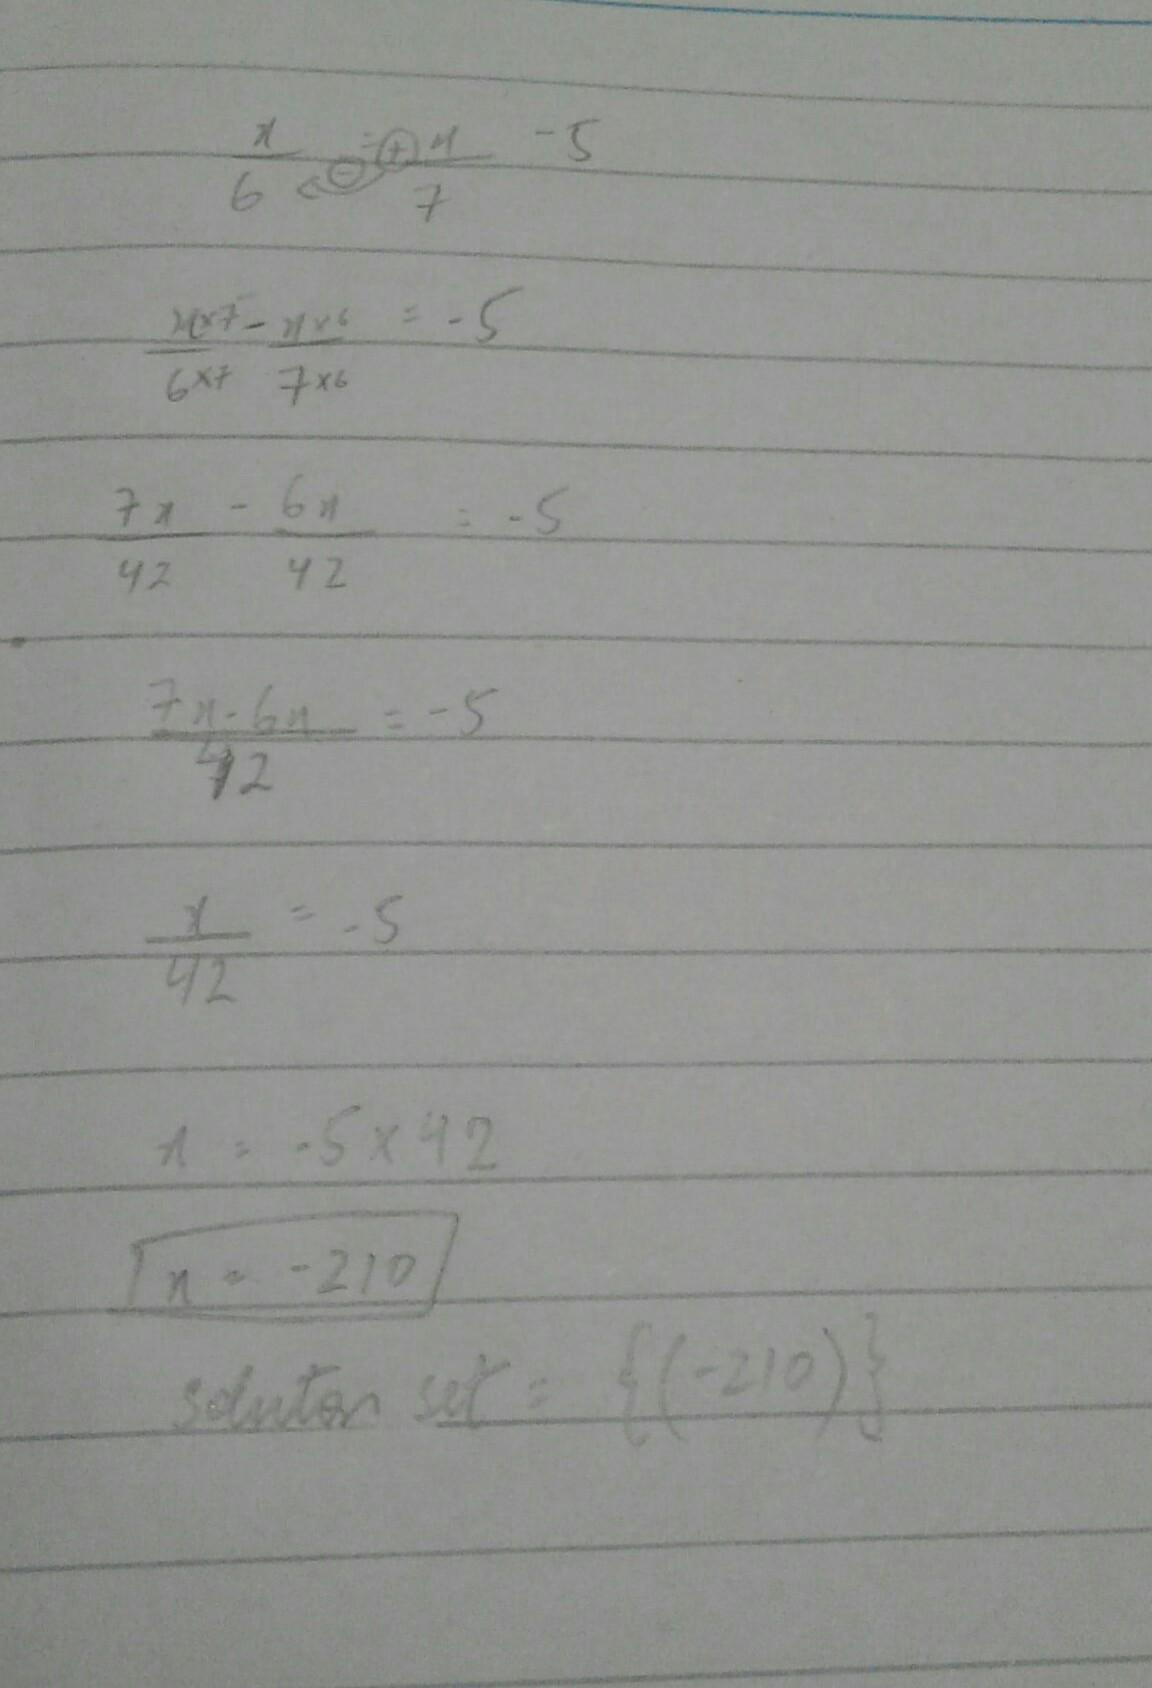 x/6 = + x/7 - 5
x×7/6×7 - x×6/7×6 = -5
7x/42 - 6x/42 = -5
7x-6x/42 = -5
x/42 = -5
x = -5×42
x = -210
soluton set = {(-210)}